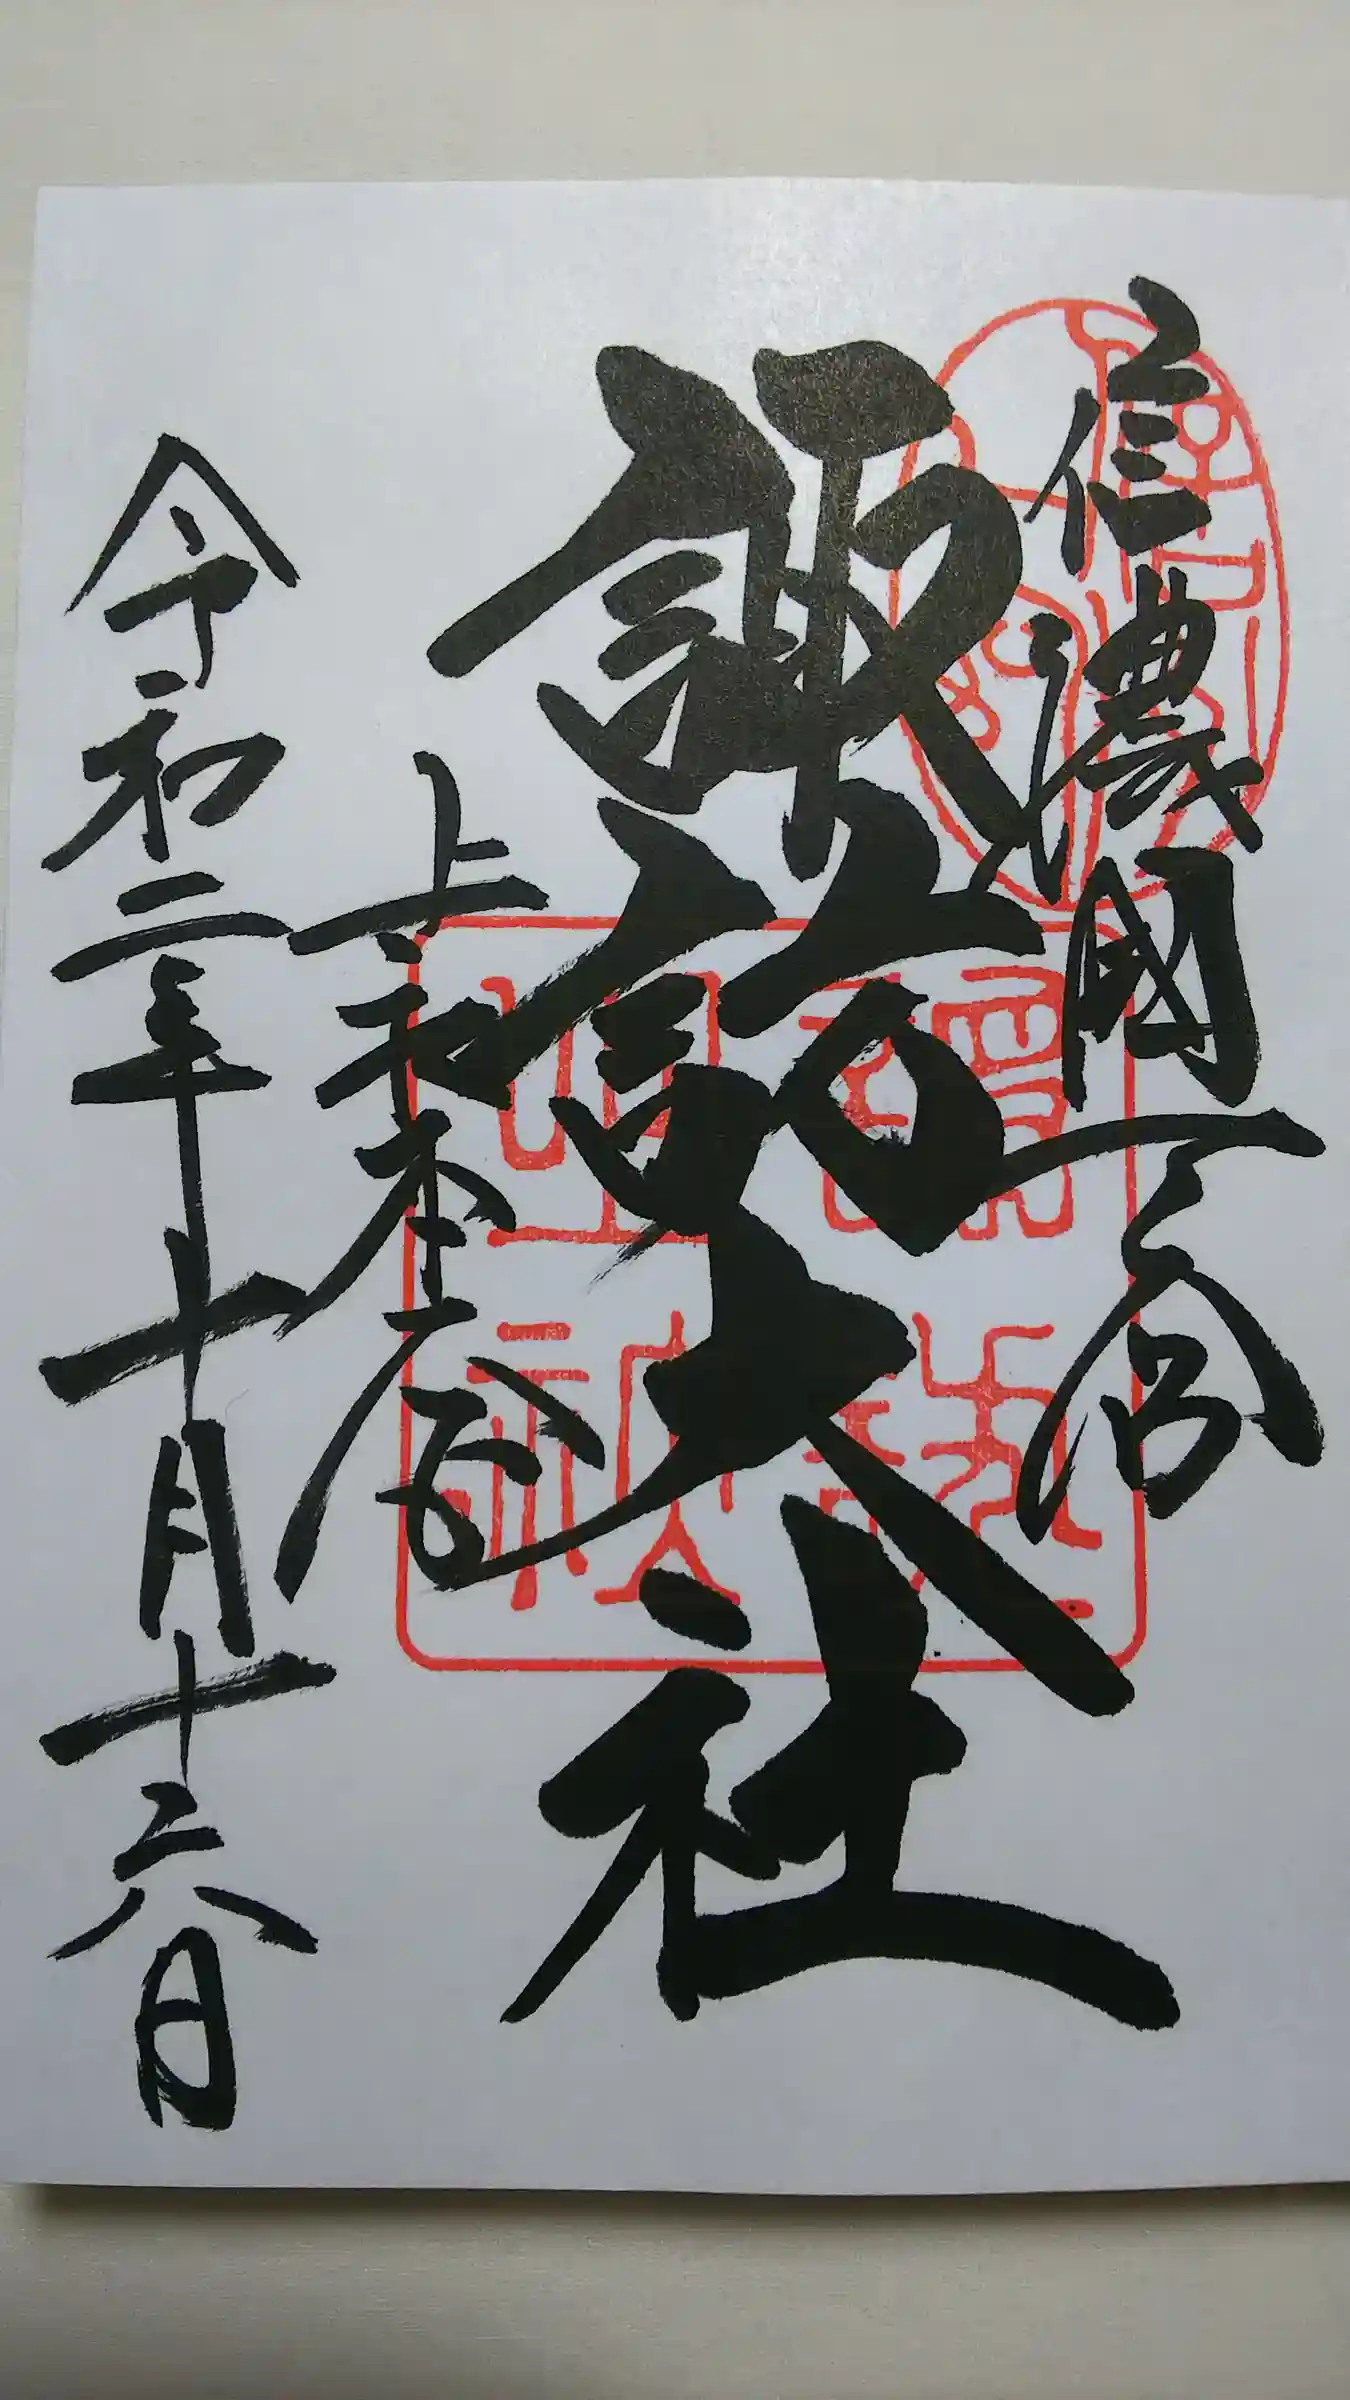 信濃國一宮
諏訪大社
上社本宮
令和二年十月十六日